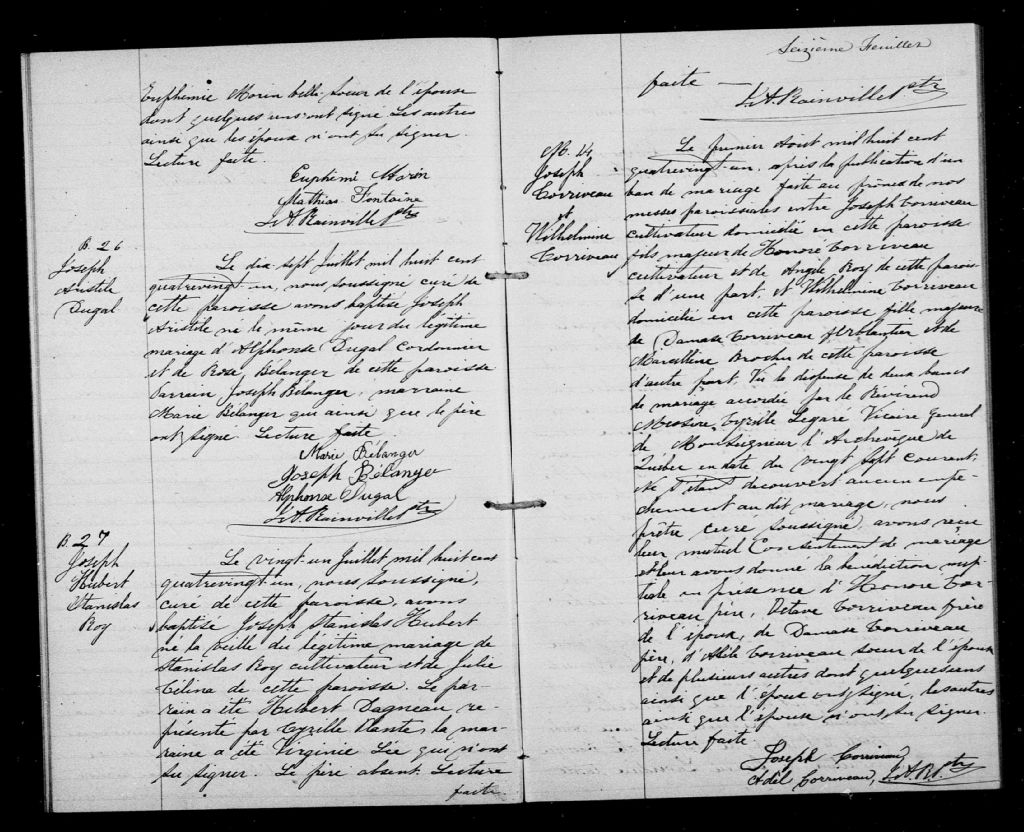 Euphémie Morin belle-soeur de l'épouse
dont quelques uns ont signé les autres
ainsi que les époux n'ont su signer.
Lecture faite.
Euphémi Morin
Mathias Fontaine
F. A. Rainville Ptre
B. 26
Joseph
Aristile
Dugal
Le dix-sept Juillet mil huit cent
quatrevingt-un, nous soussigné curé de
cette paroisse avons baptisé Joseph
Aristile né le même jour du légitime
mariage d'Alphonse Dugal Cordonnier
et de Rose Bélanger de cette paroisse
Parrain Joseph Bélanger, marraine
Marie Bélanger qui ainsi que le père
ont signé Lecture faite.
Marie Bélanger
Joseph Bélanger
Alphonse Dugal
F. A. Rainville Ptre
B. 27
Joseph
Hubert
Stanislas
Roy
Le vingt-un Juillet mil huit cent
quatrevingt-un, nous soussigné,
curé de cette paroisse, avons
baptisé Joseph Stanislas Hubert
né la veille du légitime mariage de
Stanislas Roy cultivateur et de Julie
Célina de cette paroisse. Le par-
rain a été Hubert Dagneau re-
présenté par Cyrille Plante, la mar-
raine a été Virginie Lée qui n'ont
su signer. Le père absent. Lecture
faite.
Seizième Feuillet
faite —
F. A. Rainville Ptre
M. 14
Joseph
Corriveau
et
Wilhelmine
Corriveau
Le premier Août mil huit cent
quatrevingt-un, après la publication d'un
ban de mariage faite au prône de nos
messes paroissiales entre Joseph Corriveau
cultivateur domicilié en cette paroisse
fils majeur de Honoré Corriveau
cultivateur et de Angèle Roy de cette parois-
se d'une part, et Wilhelmine Corriveau
domiciliée en cette paroisse fille majeure
de Damase Corriveau ferblantier et de
Marcelline Brochu de cette paroisse
d'autre part, Vu la dispense de deux bancs
de mariage accordée par le Révérend
Messire Cyrille Legaré Vicaire Général
de Monseigneur l'Archevêque de
Québec en date du vingt sept courant
Ne s'étant découvert aucun empê-
chement au dit mariage, nous
prêtre curé soussigné, avons reçu
leur mutuel Consentement de mariage
et leur avons donné la bénédiction nup-
tiale en présence d'Honoré Cor-
riveau père, Octave Corriveau frère
de l'époux, de Damase Corriveau
père, d'Adèle Corriveau soeur de l'épouse
et de plusieurs autres dont quelques uns
ainsi que l'époux ont signé, les autres
ainsi que l'épouse n'ont su signer.
Lecture faite
Joseph Coriveau
Adèl Corriveau, F. A. R. Ptre